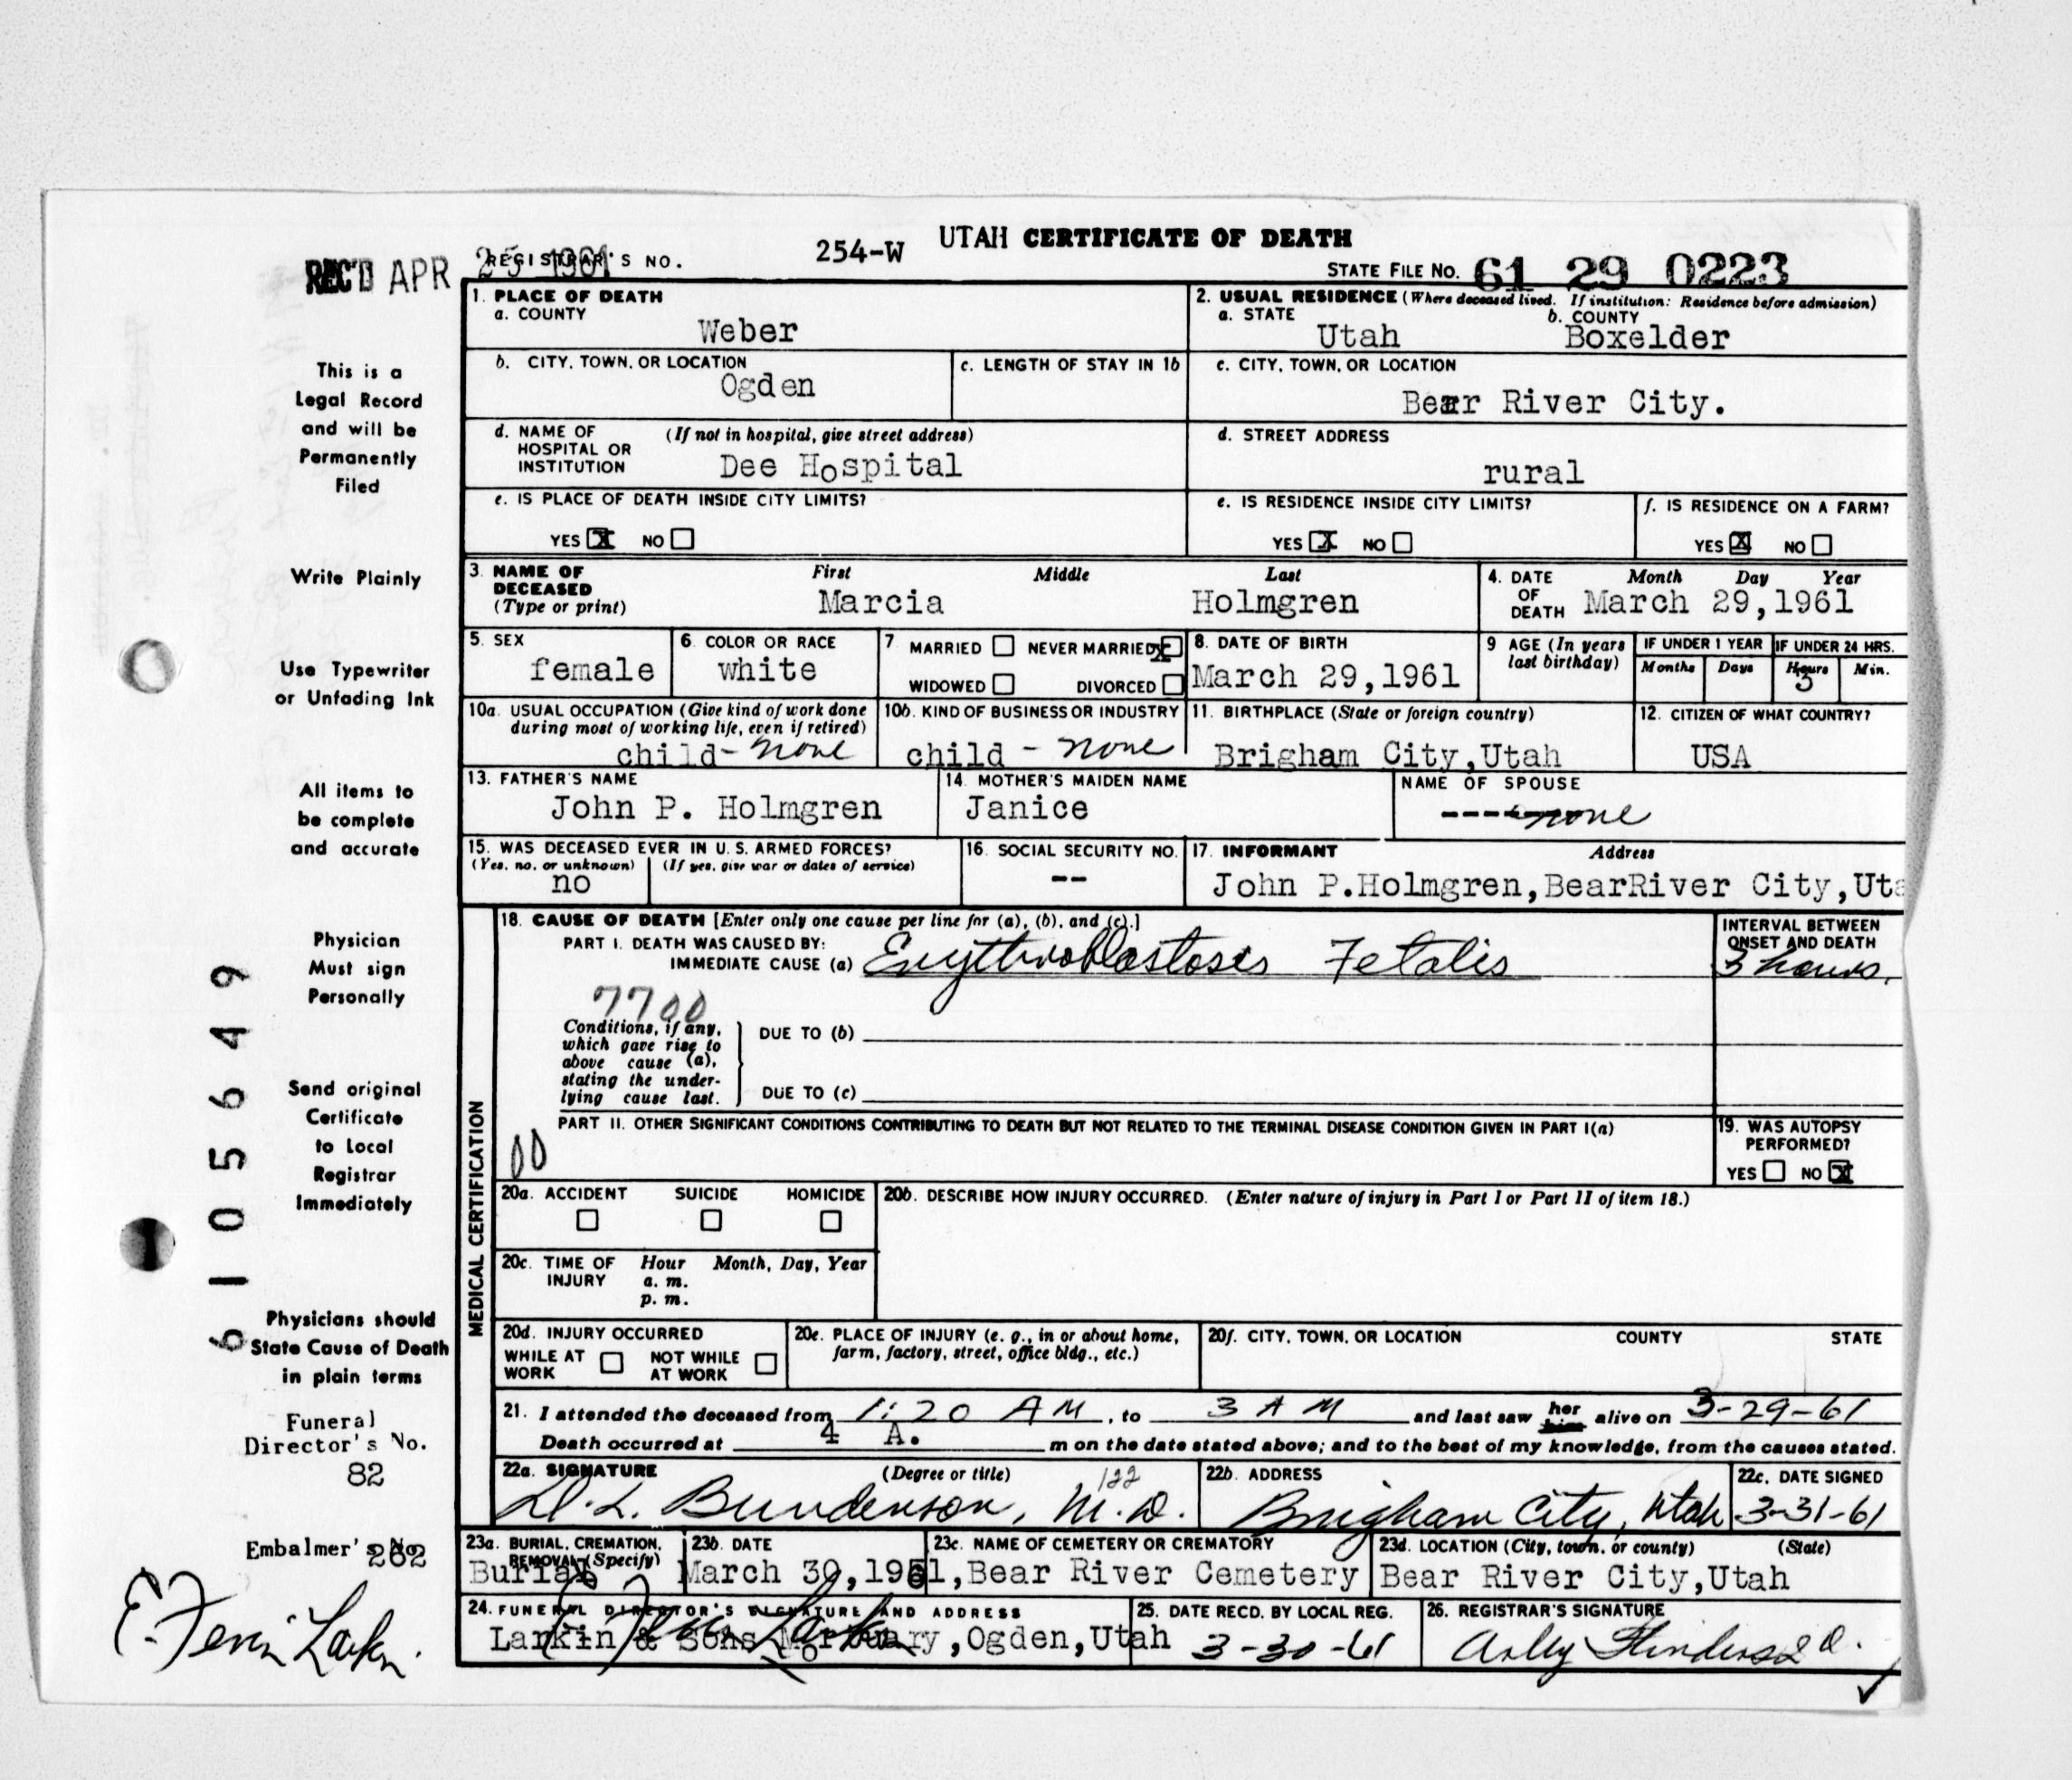 UTAH CERTIFICATE OF DEATH
REC'D APR 25 1961
REGISTRAR'S NO. 254-W
STATE FILE NO. 61 29 0223
This is a
Legal Record
and will be
Permanently
Filed
Write Plainly
Use Typewriter
or Unfading Ink
All items to
be complete
and accurate
Physician
Must sign
Personally
Send original
Certificate
to Local
Registrar
Immediately
Physicians should
State Cause of Death
in plain terms
Funeral
Director's No.
82
Embalmer's No.
262
E. Ferrin Larkin.
6105649
1. PLACE OF DEATH
a. COUNTY
Weber
2. USUAL RESIDENCE (Where deceased lived. If institution: Residence before admission)
a. STATE
Utah
b. COUNTY
Boxelder
b. CITY, TOWN, OR LOCATION
Ogden
c. LENGTH OF STAY IN 1b
c. CITY, TOWN, OR LOCATION
Bear River City.
d. NAME OF HOSPITAL OR INSTITUTION (If not in hospital, give street address)
Dee Hospital
d. STREET ADDRESS
rural
e. IS PLACE OF DEATH INSIDE CITY LIMITS?
YES X NO
e. IS RESIDENCE INSIDE CITY LIMITS?
YES X NO
f. IS RESIDENCE ON A FARM?
YES X NO
3. NAME OF DECEASED (Type or print)
First Middle Last
Marcia Holmgren
4. DATE OF DEATH
Month Day Year
March 29,1961
5. SEX
female
6. COLOR OR RACE
white
7. MARRIED NEVER MARRIED X
WIDOWED DIVORCED
8. DATE OF BIRTH
March 29,1961
9 AGE (In years last birthday)
IF UNDER 1 YEAR
Months Days
IF UNDER 24 HRS.
Hours Min.
3
10a. USUAL OCCUPATION (Give kind of work done during most of working life, even if retired)
child-none
10b. KIND OF BUSINESS OR INDUSTRY
child - none
11. BIRTHPLACE (State or foreign country)
Brigham City,Utah
12. CITIZEN OF WHAT COUNTRY?
USA
13. FATHER'S NAME
John P. Holmgren
14. MOTHER'S MAIDEN NAME
Janice
NAME OF SPOUSE
----none
15. WAS DECEASED EVER IN U.S. ARMED FORCES?
(Yes, no, or unknown) (If yes, give war or dates of service)
no
16. SOCIAL SECURITY NO.
--
17. INFORMANT Address
John P.Holmgren,BearRiver City,Uta
MEDICAL CERTIFICATION
18. CAUSE OF DEATH [Enter only one cause per line for (a), (b), and (c).]
PART I. DEATH WAS CAUSED BY:
IMMEDIATE CAUSE (a) Erythroblastosis Fetalis
INTERVAL BETWEEN ONSET AND DEATH
3 hours,
7700
Conditions, if any,
which gave rise to
above cause (a),
stating the under-
lying cause last.
DUE TO (b)
DUE TO (c)
PART II. OTHER SIGNIFICANT CONDITIONS CONTRIBUTING TO DEATH BUT NOT RELATED TO THE TERMINAL DISEASE CONDITION GIVEN IN PART I(a)
00
19. WAS AUTOPSY PERFORMED?
YES NO X
20a. ACCIDENT SUICIDE HOMICIDE
20b. DESCRIBE HOW INJURY OCCURRED. (Enter nature of injury in Part I or Part II of item 18.)
20c. TIME OF INJURY Hour Month, Day, Year
a. m.
p. m.
20d. INJURY OCCURRED
WHILE AT WORK NOT WHILE AT WORK
20e. PLACE OF INJURY (e. g., in or about home, farm, factory, street, office bldg., etc.)
20f. CITY, TOWN, OR LOCATION COUNTY STATE
21. I attended the deceased from 1:20 AM, to 3 AM and last saw her him alive on 3-29-61
Death occurred at 4 A. m on the date stated above; and to the best of my knowledge, from the causes stated.
22a. SIGNATURE (Degree or title)
D. L. Bunderson, M.D. 122
22b. ADDRESS
Brigham City, Utah
22c. DATE SIGNED
3-31-61
23a. BURIAL, CREMATION, REMOVAL (Specify)
Burial
23b. DATE
March 30,1961,
23c. NAME OF CEMETERY OR CREMATORY
Bear River Cemetery
23d. LOCATION (City, town, or county) (State)
Bear River City,Utah
24. FUNERAL DIRECTOR'S SIGNATURE AND ADDRESS
E. Ferrin Larkin
Larkin & Sons Mortuary,Ogden,Utah
25. DATE RECD. BY LOCAL REG.
3-30-61
26. REGISTRAR'S SIGNATURE